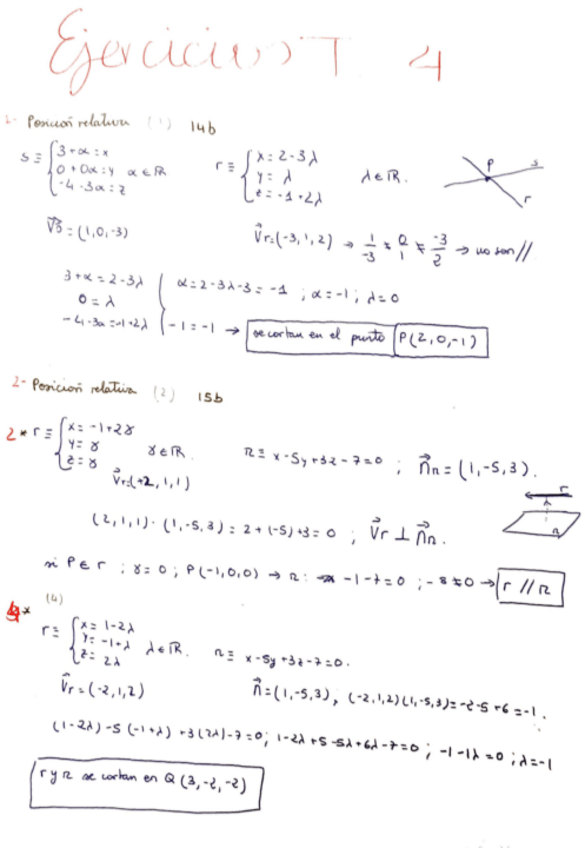 Ejercicios T 4
1- Posición relativa (1) 14b
s ≡ { 3+α=x
0+0α=y α∈ℝ
-4-3α=z
r ≡ { x=2-3λ
y=λ λ∈ℝ.
z=-1+2λ
P s
r
V⃗s=(1,0,-3)
V⃗r=(-3,1,2) → 1/-3 ≠ 0/1 ≠ -3/2 → no son //
3+α=2-3λ
0=λ
-4-3α=-1+2λ
α=2-3λ-3=-1 ; α=-1 ; λ=0
-1=-1 → se cortan en el punto P(2,0,-1)
2- Posición relativa (2) 15b
2* r ≡ { x=-1+2γ
y=γ γ∈ℝ.
z=γ
π ≡ x-5y+3z-7=0 ; n⃗π=(1,-5,3).
V⃗r=(+2,1,1)
r
π
(2,1,1)·(1,-5,3)=2+(-5)+3=0 ; V⃗r ⊥ n⃗π.
si P∈r ; γ=0 ; P(-1,0,0) → π: -1-7=0 ; -8≠0 → r // π
* (4)
r ≡ { x=1-2λ
y=-1+λ λ∈ℝ.
z=2λ
π ≡ x-5y+3z-7=0.
V⃗r=(-2,1,2)
n⃗=(1,-5,3), (-2,1,2)(1,-5,3)=-2-5+6=-1.
(1-2λ)-5(-1+λ)+3(2λ)-7=0; 1-2λ+5-5λ+6λ-7=0 ; -1-1λ=0 ; λ=-1
r y π se cortan en Q(3,-2,-2)